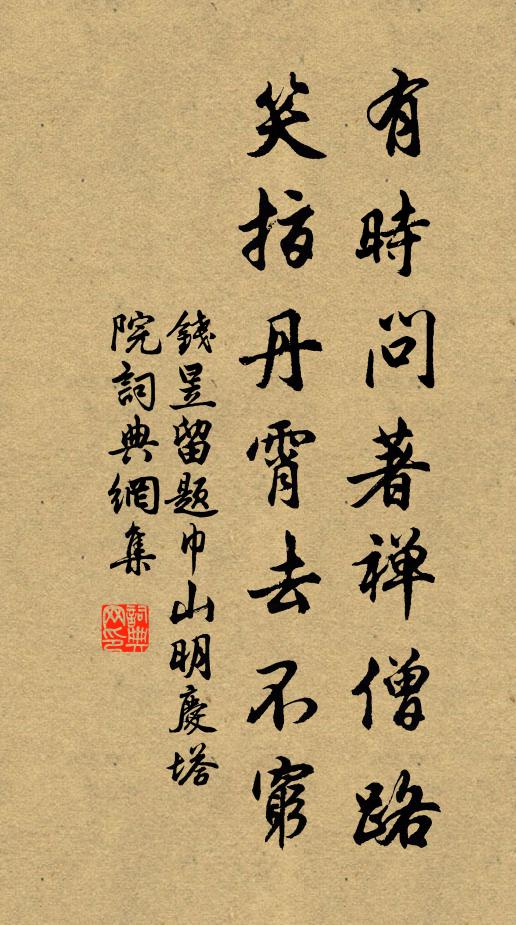 有時問著禅僧路
笑指丹霄去不窮
錢昱留题巾山明慶塔
院詞典網集
詞典網印